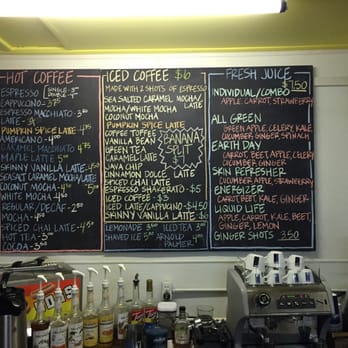 HOT COFFEE
ESPRESSO SINGLE-3
DOUBLE-
CAPPUCCINO-3.75
ESPRESSO MACCHIATO-3
LATTE-
PUMPKIN SPICE LATTE-
AMERICANO-
CARAMEL MACCHIATO 4.75
MAPLE LATTE 5
SKINNY VANILLA LATTE-
SEASALT CARAMEL MOCHA LATTE
COCONUT MOCHA-
WHITE MOCHA-4.50
REGULAR/DECAF-2.50
MOCHA-4.50
SPICED CHAI LATTE-4.50
HOT TEA-
COCOA-3
ICED COFFEE $6
MADE WITH 2 SHOTS OF ESPRESSO
SEA SALTED CARAMEL MOCHA/
MOCHA/WHITE MOCHA LATTE
COCONUT MOCHA
PUMPKIN SPICE LATTE
COFFEE TOFFEE
VANILLA BEAN
GREEN TEA
CARAMEL LATTE
JAVA CHIP
CINNAMON DOLCE LATTE
SPICED CHAI LATTE
ESPRESSO SHAKERATO-$5
ICED COFFEE-$3
ICED LATTE/CAPPUCCINO-$4.50
SKINNY VANILLA LATTE-$5
BANANA
$1
LEMONADE 3 ICED TEA 3
SHAVED ICE 5 ARNOLD PALMER
FRESH JUICE
$7.50
INDIVIDUAL/COMBO
APPLE, CARROT, STRAWBERRY
ALL GREEN
GREEN APPLE, CELERY, KALE
CUCUMBER, GINGER, SPINACH
EARTH DAY
CARROT, BEET, APPLE, CELERY
CUCUMBER, GINGER
SKIN REFRESHER
CUCUMBER, APPLE, STRAWBERRY
ENERGIZER
CARROT, BEET, KALE, GINGER
LIQUID LIFE
APPLE, CARROT, KALE, BEET,
GINGER, LEMON
GINGER SHOTS 3.50